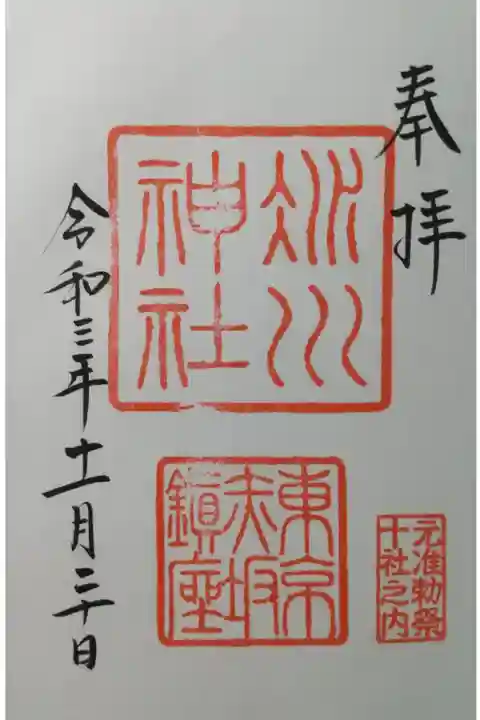 奉拝
氷川
神社
東京
赤坂
鎮座
元准勅祭
十社之内
令和三年十一月三十日